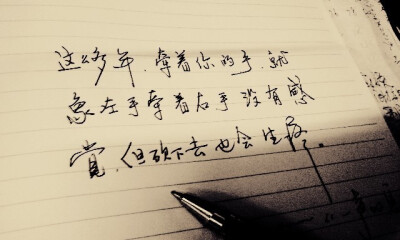 这么多年，牵着你的手，就
象左手牵着右手没有感
觉，但砍下去也会生疼。